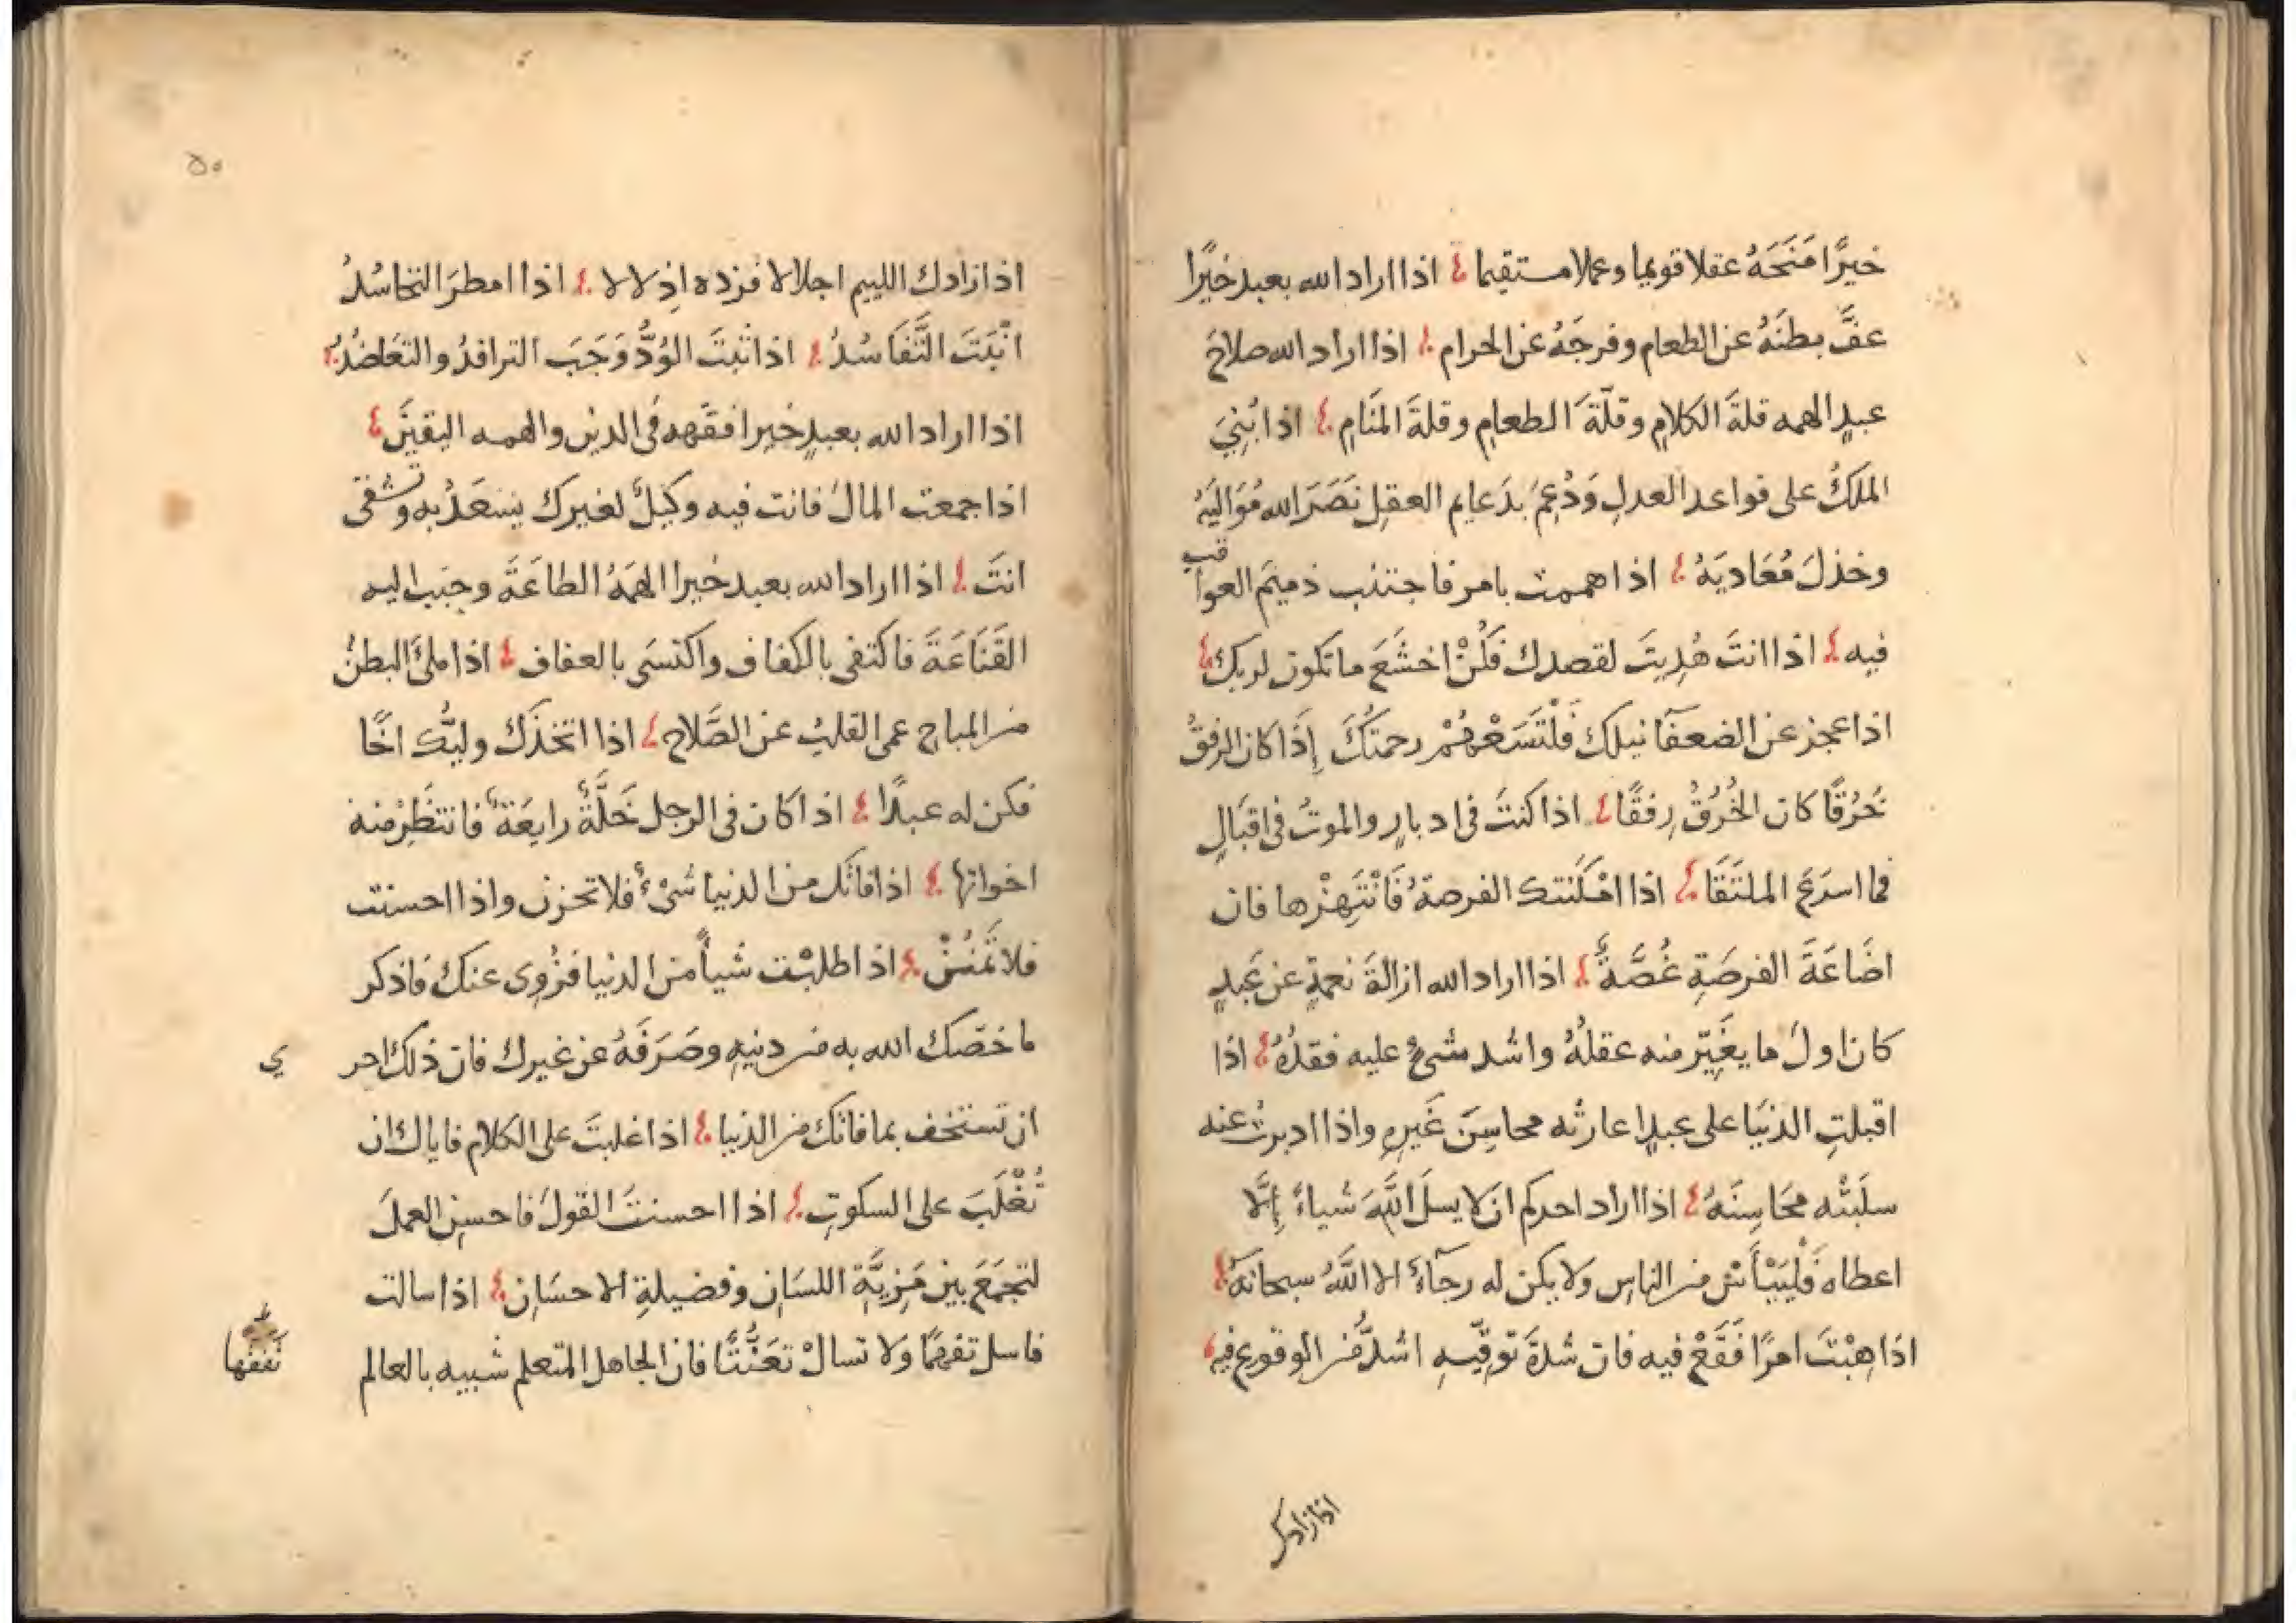 خيرًا مَنَحَهُ عقلا قويما وعملا مستقيما اذا اراد الله بعبد خيرًا
عفَّ بطنَهُ عن الطعام وفرجَهُ عن الحرام اذا اراد الله صلاحَ
عبدٍ الهمه قلةَ الكلامِ وقلّةَ الطعامِ وقلةَ المنَامِ اذا بُنِيَ
الملكُ على قواعد العدلِ وَدُعِمَ بدَعايم العقلِ نَصَرَ الله مُوَاليَهُ
وخذلَ مُعَاديَهُ اذا هممت بامر فاجتنب ذميمَ العواقب
فيه اذا انتَ هُدِيتَ لقصدك فكُنْ اخشَعَ ما تكون لربك
اذا عجز عن الضعفآ نيلك فَلْتَسَعْهُمْ رحمتُكَ إِذَا كان الرفقُ
خَرُقًا كان الخُرُقُ رِفقًا اذا كنتَ فى ادبارٍ والموتُ فى اقبَالٍ
فما اسرَعَ الملتَقَا اذا امْكَنتك الفرصةُ فَانْتَهِزْها فان
اضَاعَةَ الفرصَةِ غُصَّةٌ اذا اراد الله ازالةَ نعمةٍ عن عَبدٍ
كان اولَ ما يغَيِّر منه عقلُهُ واشد شىءٍ عليه فقدُهُ اذا
اقبلتِ الدنيَا على عبدٍ اعارتْه محاسِنَ غَيرِهِ واذا ادبرتْ عنه
سلَبَتْه محَاسِنَهُ اذا اراد احدكم ان لا يسلَ اللَّهَ شياءً إلَّا
اعطاه فَلْيَيْأَسْ من الناسِ ولا يكن له رجآءٌ الا اللَّهُ سبحانَهُ
اذا هِبْتَ امرًا فَقَعْ فيه فان شدةَ توقّيهِ اشدُّ من الوقوعِ فيه
اذا زادك
٥٠
اذا زادك اللييم اجلالا فزده اذِلالا اذا امطرَ التحاسُدُ
انْبَتَ التَّفَاسُدُ اذا ثبتَ الوُدُّ وَجَبَ الترافدُ والتعَاضُدُ
اذا اراد الله بعبدٍ خيرا فقّهه فى الدين والهمه اليقينَ
اذا جمعت المالَ فانت فيه وكيلٌ لغيرك يسعَدُ به وتشقى
انتَ اذا اراد الله بعبد خيرا الهمَهُ الطاعَةَ وحبب اليه
القَنَاعَةَ فاكتفى بالكفاف واكتسَى بالعفاف اذا ملئَ البطنُ
من المباح عمى القلبُ عن الصَّلاح اذا اتخذَك وليُّك اخًا
فكن له عبدًا اذا كان فى الرجل خَلَّةٌ رايعَةٌ فانتظِرْ منه
اخواتها اذا فاتَك من الدنيا شىْءٌ فلا تحزن واذا احسنت
فلا تَمْنُنْ اذا طلبْت شيأً من الدنيا فزُوِى عنك فاذكر
ما خصّك الله به من دنيهِ وصَرَفَهُ عن غيرك فان ذلك احر ي
ان تستخف بما فاتك من الدنيا اذا غلبتَ على الكلام فاياك ان
تُغْلَبَ على السكوتِ اذا احسنتَ القولَ فاحسِن العملَ
لتجمَعَ بين مَزِيَّةِ اللسَانِ وفضيلةِ الاحسَانِ اذا سالت
فاسل تفهمًا ولا تسالْ تعَنُّتًا فان الجاهل المتعلم شبيه بالعالم
تَفَقُّها